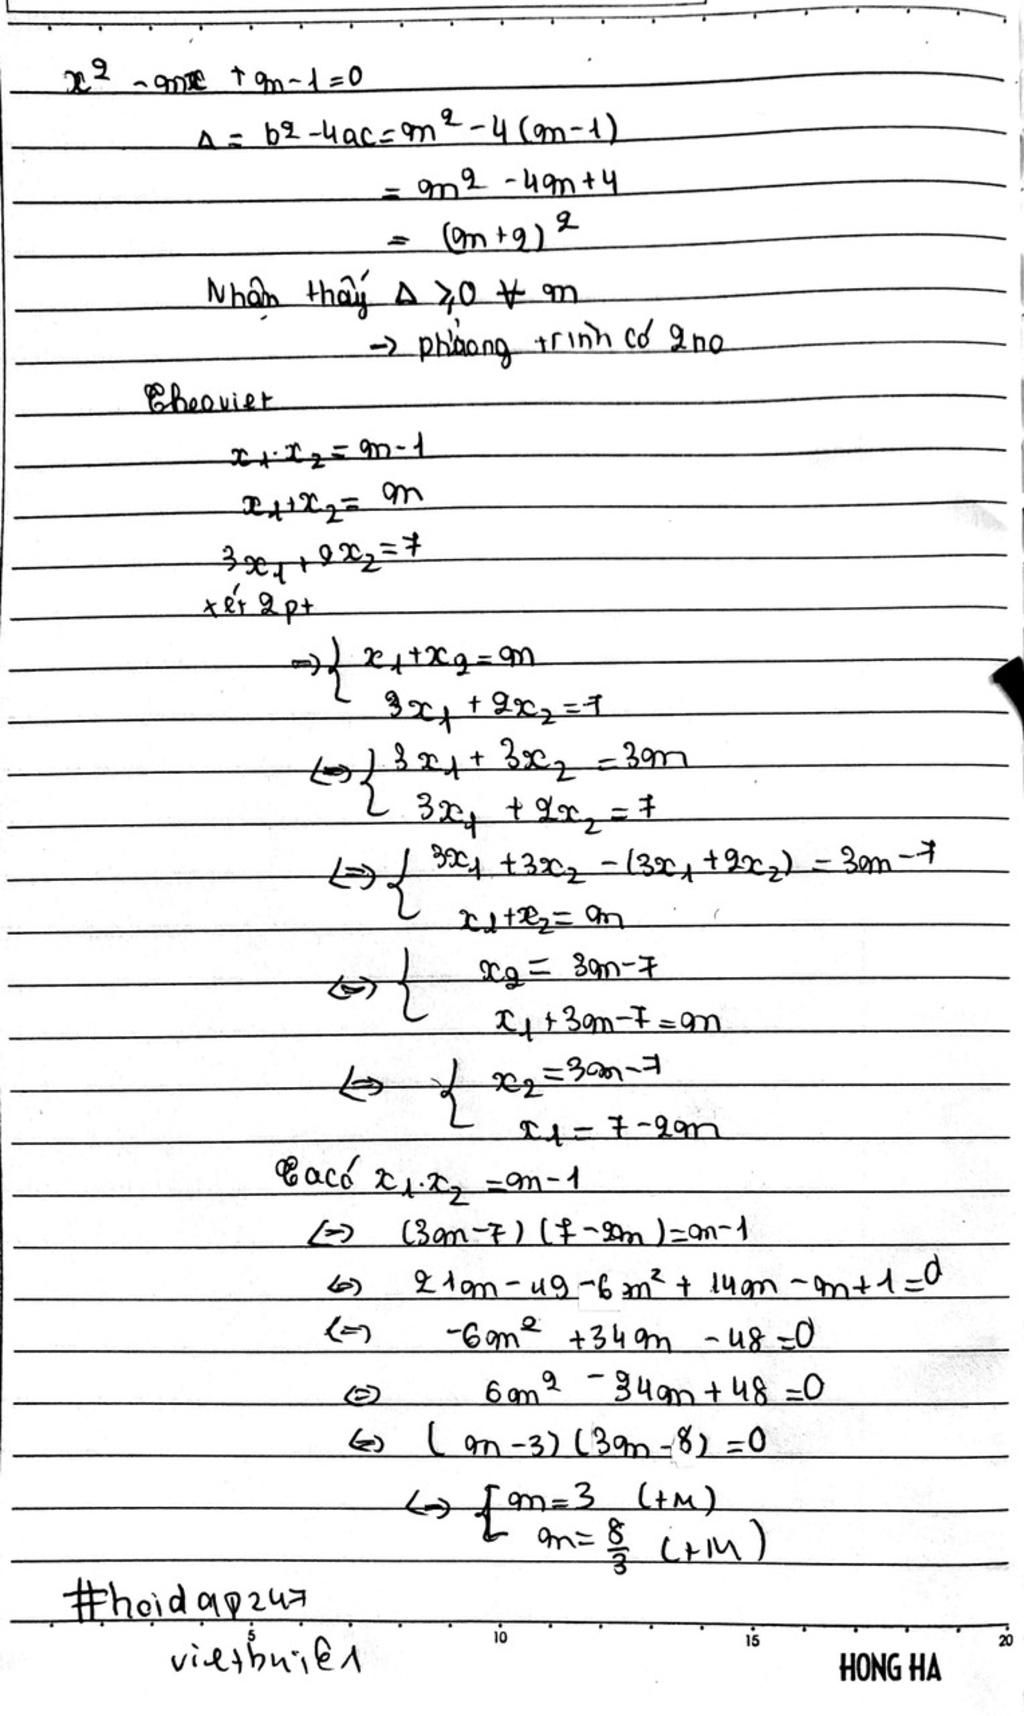 x² - mx + m - 1 = 0
Δ = b² - 4ac = m² - 4(m - 1)
= m² - 4m + 4
= (m + 2)²
Nhận thấy Δ ⩾ 0 ∀ m
→ phương trình có 2 no
Theo viet
x₁.x₂ = m - 1
x₁ + x₂ = m
3x₁ + 2x₂ = 7
xét 2 pt
⇒ { x₁ + x₂ = m
3x₁ + 2x₂ = 7
⇔ { 3x₁ + 3x₂ = 3m
3x₁ + 2x₂ = 7
⇔ { 3x₁ + 3x₂ - (3x₁ + 2x₂) = 3m - 7
x₁ + x₂ = m
⇔ { x₂ = 3m - 7
x₁ + 3m - 7 = m
⇔ { x₂ = 3m - 7
x₁ = 7 - 2m
Ta có x₁.x₂ = m - 1
⇔ (3m - 7)(7 - 2m) = m - 1
⇔ 21m - 49 - 6m² + 14m - m + 1 = 0
⇔ -6m² + 34m - 48 = 0
⇔ 6m² - 34m + 48 = 0
⇔ (m - 3)(3m - 8) = 0
⇔ [ m = 3 (tM)
m = 8/3 (tM)
#hoidap247
5 10 15 20
HONG HA